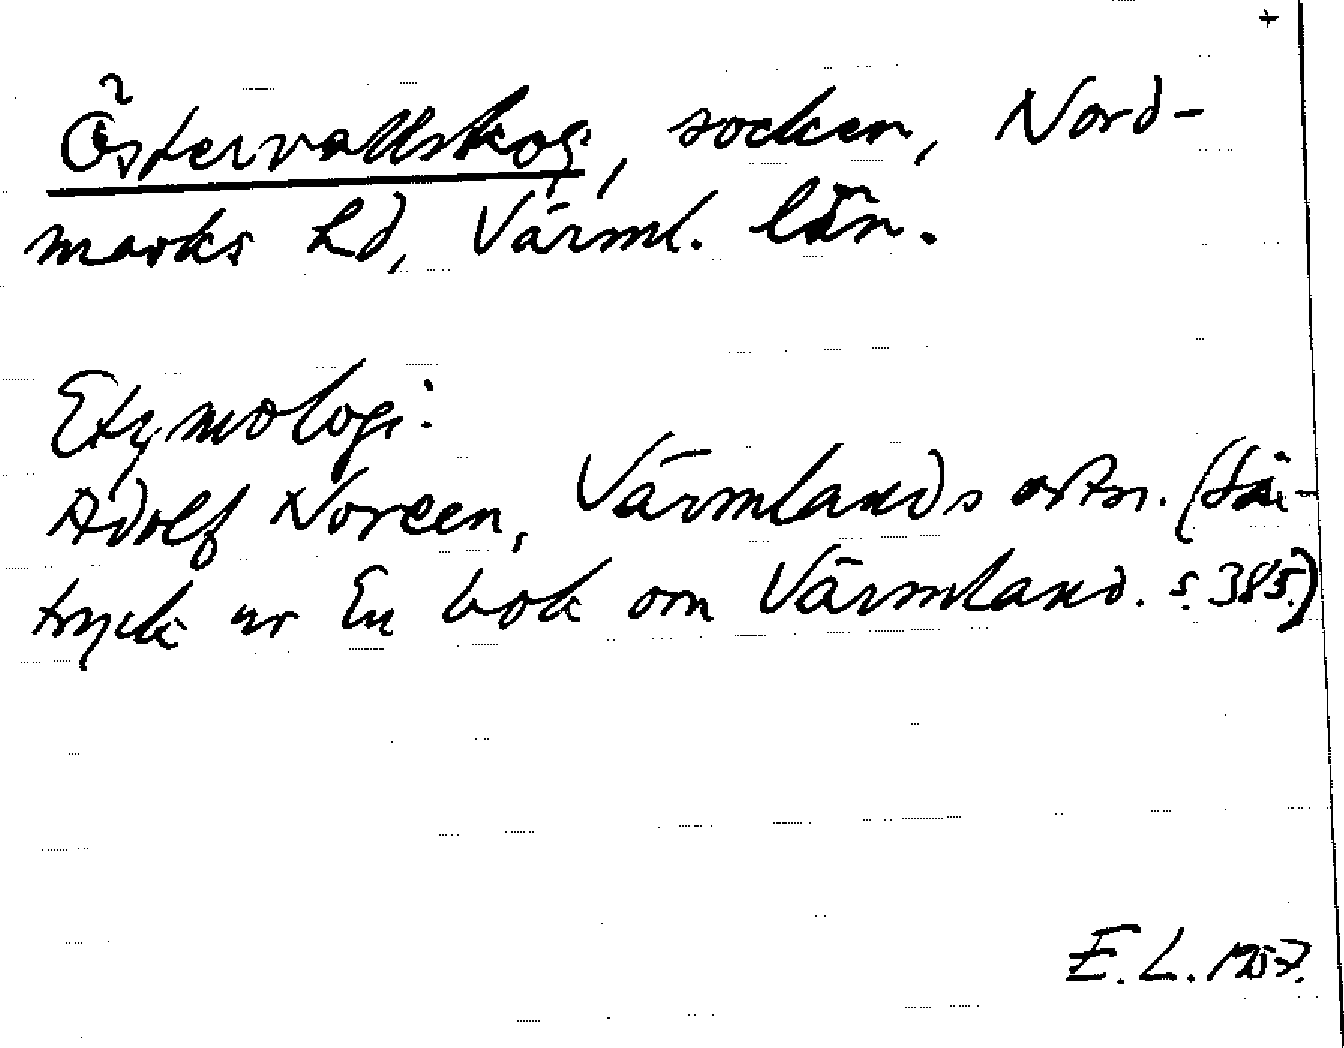 +
Östervallskog, socken, Nord-
marks hd, Värml. län.
Etymologi:
Adolf Noreen, Värmlands ortn. (Sär-
tryck ur En bok om Värmland. s. 385.)
E. L. 1957.